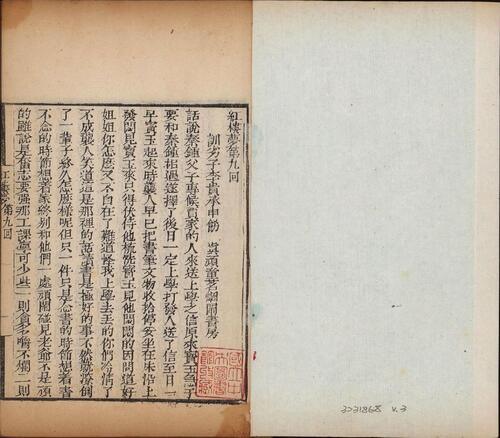 紅樓夢第九回
訓劣子李貴承申飭 嗔頑童茗烟鬧書房
話說秦鍾父子專候賈家的人來送上學之信原來寶玉急于
要和秦鍾相遇遂擇了後日一定上學打發人送了信至日一
早寶玉起來時襲人早已把書筆文物收拾停妥坐在床沿上
發悶見寶玉來只得伏侍他梳洗寶玉見他悶悶的因問道好
姐姐你怎麽又不自在了難道怪我上學去丟的你們冷清了
不成襲人笑道這是那裡的話讀書是極好的事不然就潦倒
了一輩子終久怎麽樣呢但只一件只是念書的時節想着書
不念的時節想着家終别和他們一處頑鬧碰見老爺不是頑
的雖說是奮志要強那工課寧可少些一則貪多嚼不爛二則
第九回
3231868 v.3